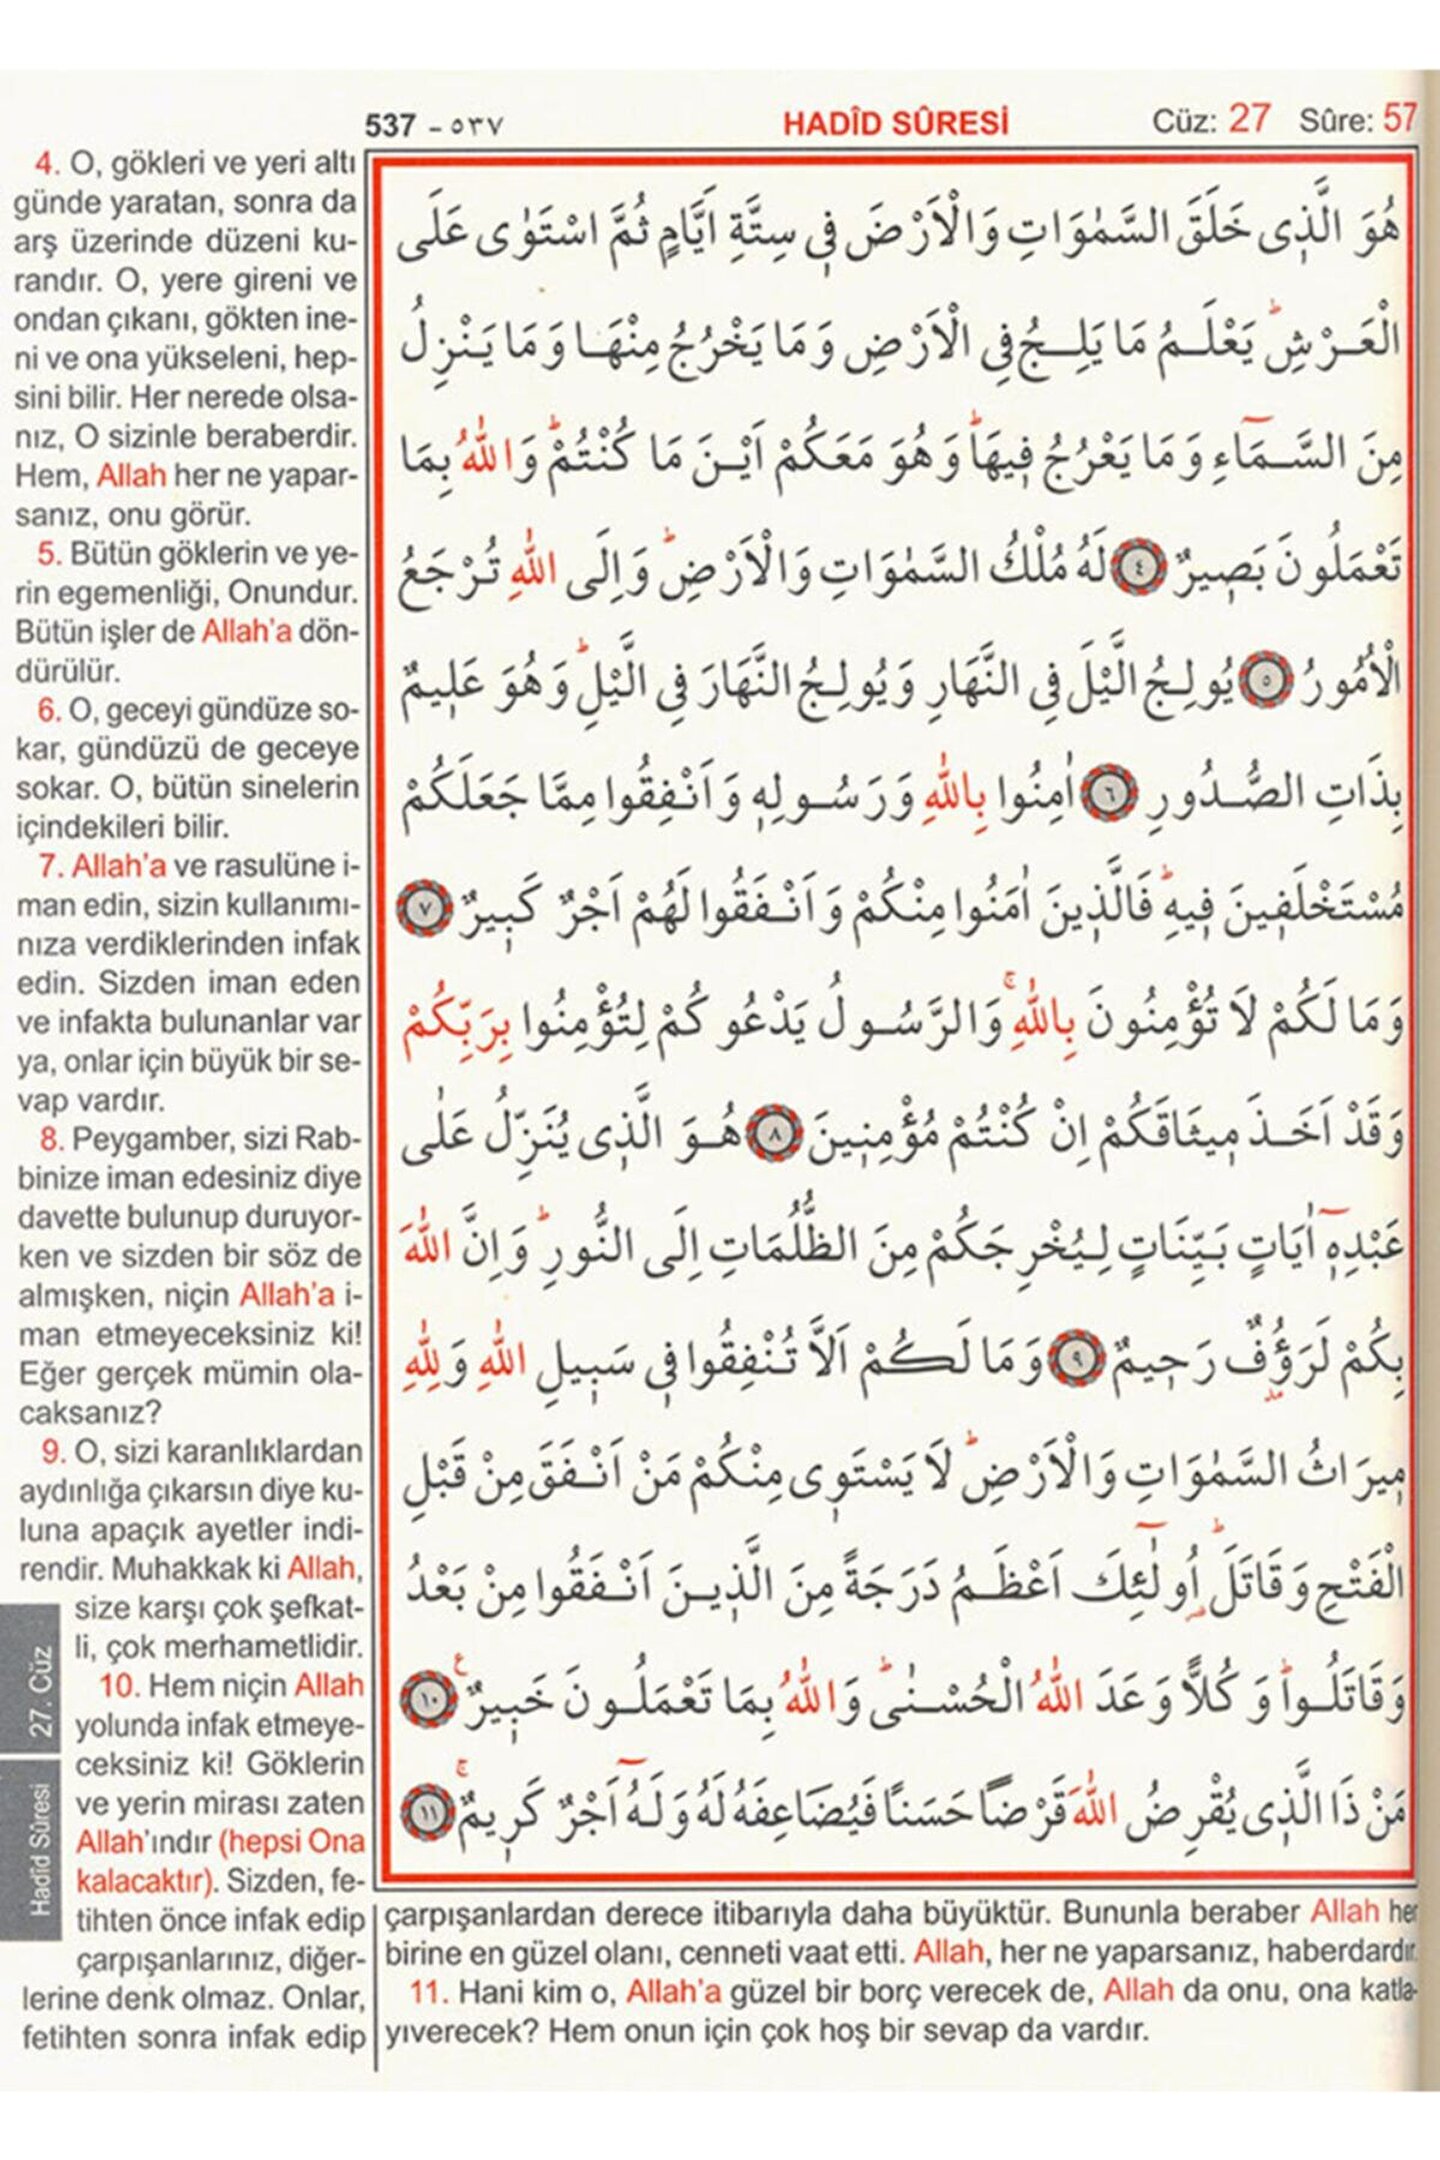 537 - ٥٣٧ HADÎD SÛRESİ Cüz: 27 Sûre: 57
4. O, gökleri ve yeri altı
günde yaratan, sonra da
arş üzerinde düzeni ku-
randır. O, yere gireni ve
ondan çıkanı, gökten ine-
ni ve ona yükseleni, hep-
sini bilir. Her nerede olsa-
nız, O sizinle beraberdir.
Hem, Allah her ne yapar-
sanız, onu görür.
5. Bütün göklerin ve ye-
rin egemenliği, Onundur.
Bütün işler de Allah'a dön-
dürülür.
6. O, geceyi gündüze so-
kar, gündüzü de geceye
sokar. O, bütün sinelerin
içindekileri bilir.
7. Allah'a ve rasulüne i-
man edin, sizin kullanımı-
nıza verdiklerinden infak
edin. Sizden iman eden
ve infakta bulunanlar var
ya, onlar için büyük bir se-
vap vardır.
8. Peygamber, sizi Rab-
binize iman edesiniz diye
davette bulunup duruyor-
ken ve sizden bir söz de
almışken, niçin Allah'a i-
man etmeyeceksiniz ki!
Eğer gerçek mümin ola-
caksanız?
9. O, sizi karanlıklardan
aydınlığa çıkarsın diye ku-
luna apaçık ayetler indi-
rendir. Muhakkak ki Allah,
size karşı çok şefkat-
li, çok merhametlidir.
10. Hem niçin Allah
yolunda infak etmeye-
ceksiniz ki! Göklerin
ve yerin mirası zaten
Allah'ındır (hepsi Ona
kalacaktır). Sizden, fe-
tihten önce infak edip
çarpışanlarınız, diğer-
lerine denk olmaz. Onlar,
fetihten sonra infak edip
27. Cüz
Hadîd Sûresi
هُوَ الَّذ۪ى خَلَقَ السَّمٰوَاتِ وَالْاَرْضَ ف۪ى سِتَّةِ اَيَّامٍ ثُمَّ اسْتَوٰى عَلَى
الْعَرْشِۜ يَعْلَمُ مَا يَلِجُ فِى الْاَرْضِ وَمَا يَخْرُجُ مِنْهَا وَمَا يَنْزِلُ
مِنَ السَّمَٓاءِ وَمَا يَعْرُجُ ف۪يهَاۜ وَهُوَ مَعَكُمْ اَيْنَ مَا كُنْتُمْۜ وَاللّٰهُ بِمَا
تَعْمَلُونَ بَص۪يرٌ ﴿٤﴾ لَهُ مُلْكُ السَّمٰوَاتِ وَالْاَرْضِۜ وَاِلَى اللّٰهِ تُرْجَعُ
الْاُمُورُ ﴿٥﴾ يُولِجُ الَّيْلَ فِى النَّهَارِ وَيُولِجُ النَّهَارَ فِى الَّيْلِۜ وَهُوَ عَل۪يمٌ
بِذَاتِ الصُّدُورِ ﴿٦﴾ اٰمِنُوا بِاللّٰهِ وَرَسُولِه۪ وَاَنْفِقُوا مِمَّا جَعَلَكُمْ
مُسْتَخْلَف۪ينَ ف۪يهِۜ فَالَّذ۪ينَ اٰمَنُوا مِنْكُمْ وَاَنْفَقُوا لَهُمْ اَجْرٌ كَب۪يرٌ ﴿٧﴾
وَمَا لَكُمْ لَا تُؤْمِنُونَ بِاللّٰهِۚ وَالرَّسُولُ يَدْعُوكُمْ لِتُؤْمِنُوا بِرَبِّكُمْ
وَقَدْ اَخَذَ م۪يثَاقَكُمْ اِنْ كُنْتُمْ مُؤْمِن۪ينَ ﴿٨﴾ هُوَ الَّذ۪ى يُنَزِّلُ عَلٰى
عَبْدِه۪ٓ اٰيَاتٍ بَيِّنَاتٍ لِيُخْرِجَكُمْ مِنَ الظُّلُمَاتِ اِلَى النُّورِۜ وَاِنَّ اللّٰهَ
بِكُمْ لَرَؤُ۫فٌ رَح۪يمٌ ﴿٩﴾ وَمَا لَكُمْ اَلَّا تُنْفِقُوا ف۪ى سَب۪يلِ اللّٰهِ وَلِلّٰهِ
م۪يرَاثُ السَّمٰوَاتِ وَالْاَرْضِۜ لَا يَسْتَو۪ى مِنْكُمْ مَنْ اَنْفَقَ مِنْ قَبْلِ
الْفَتْحِ وَقَاتَلَۜ اُو۬لٰٓئِكَ اَعْظَمُ دَرَجَةً مِنَ الَّذ۪ينَ اَنْفَقُوا مِنْ بَعْدُ
وَقَاتَلُواۜ وَكُلًّا وَعَدَ اللّٰهُ الْحُسْنٰىۜ وَاللّٰهُ بِمَا تَعْمَلُونَ خَب۪يرٌ ﴿١٠﴾ ع
مَنْ ذَا الَّذ۪ى يُقْرِضُ اللّٰهَ قَرْضًا حَسَنًا فَيُضَاعِفَهُ لَهُ وَلَهُٓ اَجْرٌ كَر۪يمٌۚ ﴿١١﴾
çarpışanlardan derece itibarıyla daha büyüktür. Bununla beraber Allah her
birine en güzel olanı, cenneti vaat etti. Allah, her ne yaparsanız, haberdardır.
11. Hani kim o, Allah'a güzel bir borç verecek de, Allah da onu, ona katla-
yıverecek? Hem onun için çok hoş bir sevap da vardır.